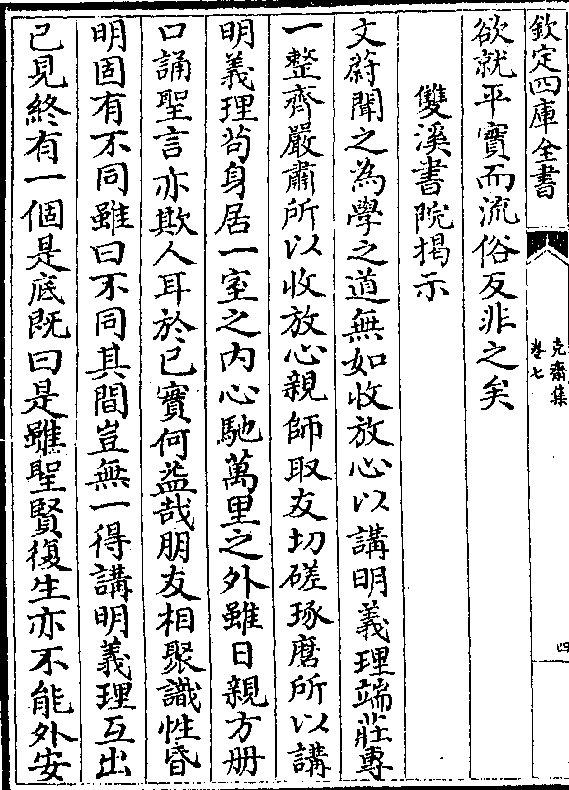 欽定四庫全書
克齋集
卷七
四
欲就平實而流俗反非之矣
雙溪書院揭示
文蔚聞之為學之道無如收放心以講明義理端莊專
一整齊嚴肅所以收放心親師取友切磋琢磨所以講
明義理苟身居一室之内心馳萬里之外雖日親方册
口誦聖言亦欺人耳於已實何益哉朋友相聚識性昏
明固有不同雖曰不同其間豈無一得講明義理互出
已見終有一個是底既曰是雖聖賢復生亦不能外安